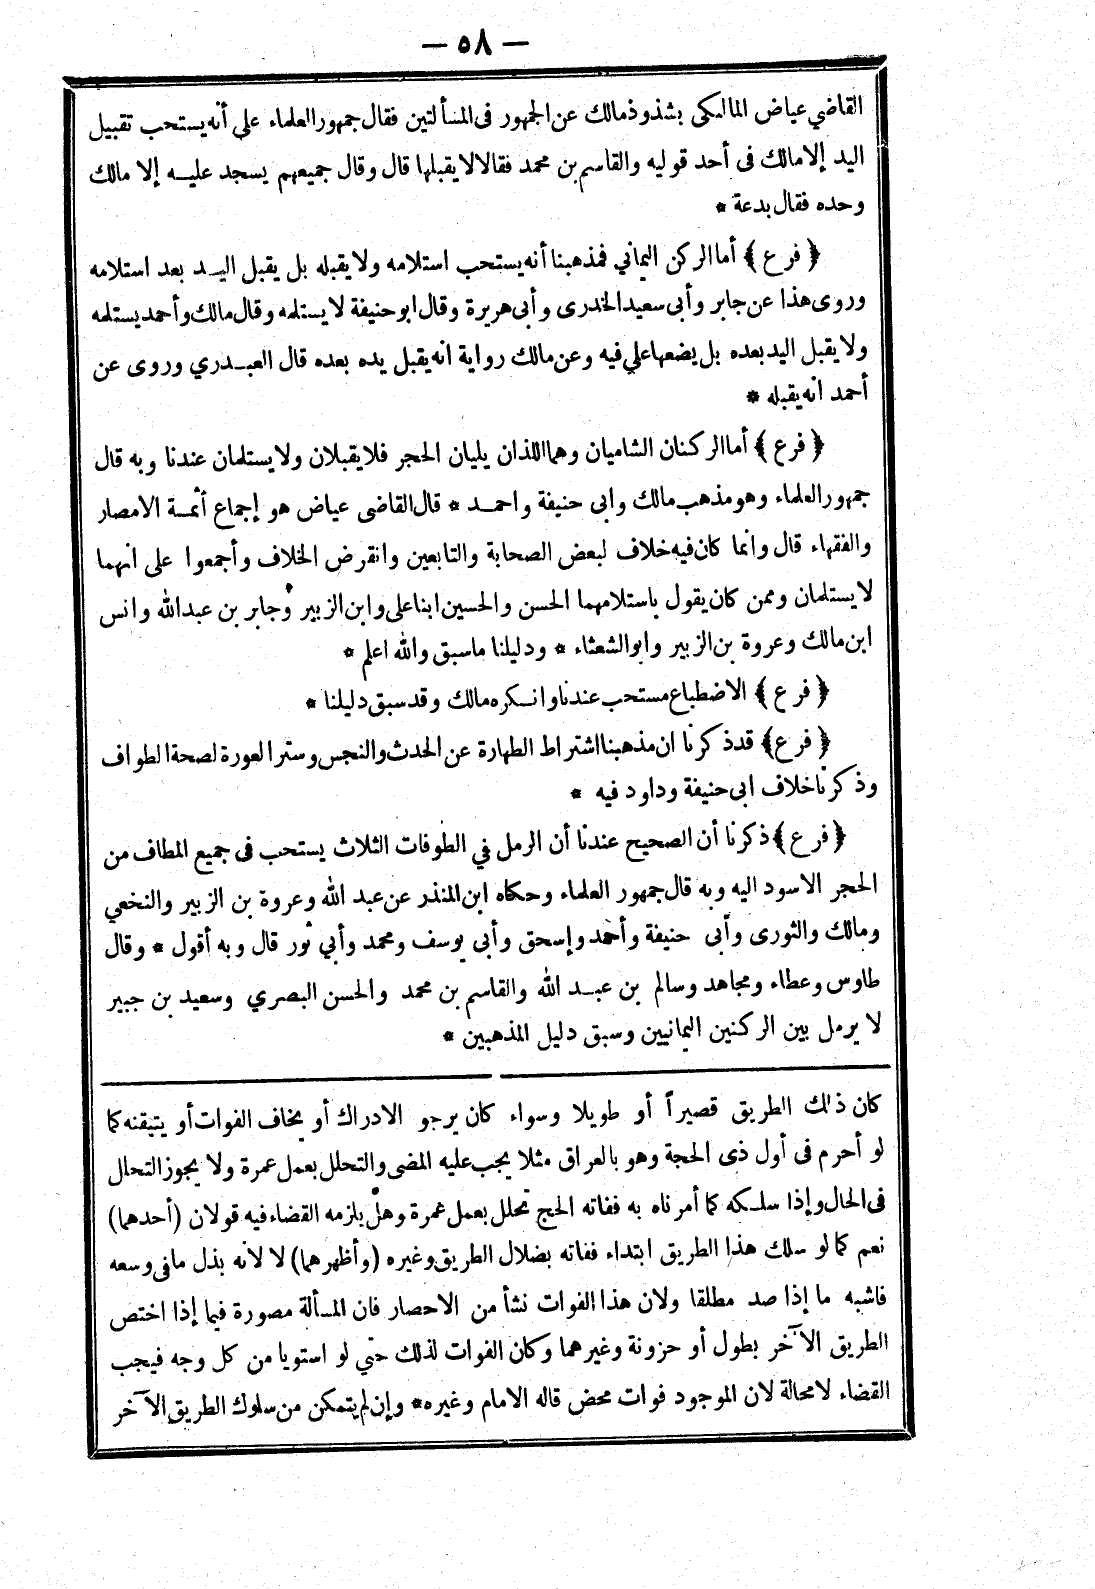 — ٥٨ —
القاضي عياض المالكى بشذوذ مالك عن الجمهور فى المسألتين فقال جمهور العلماء على أنه يستحب تقبيل
اليد إلا مالك فى أحد قوليه والقاسم بن محمد فقالا لا يقبلها قال وقال جميعهم يسجد عليه إلا مالك
وحده فقال بدعة *
﴿ فرع ﴾ أما الركن اليماني فمذهبنا أنه يستحب استلامه ولا يقبله بل يقبل اليد بعد استلامه
وروى هذا عن جابر وأبى سعيد الخدرى وأبى هريرة وقال ابو حنيفة لا يستلمه وقال مالك وأحمد يستلمه
ولا يقبل اليد بعده بل يضعها على فيه وعن مالك رواية انه يقبل يده بعده قال العبدري وروى عن
أحمد انه يقبله *
﴿ فرع ﴾ أما الركنان الشاميان وهما اللذان يليان الحجر فلا يقبلان ولا يستلمان عندنا وبه قال
جمهور العلماء وهو مذهب مالك وابى حنيفة واحمد * قال القاضى عياض هو إجماع أئمة الامصار
والفقهاء قال وانما كان فيه خلاف لبعض الصحابة والتابعين وانقرض الخلاف وأجمعوا على انهما
لا يستلمان وممن كان يقول باستلامهما الحسن والحسين ابنا على وابن الزبير وجابر بن عبد الله وانس
ابن مالك وعروة بن الزبير وابو الشعثاء * ودليلنا ما سبق والله اعلم *
﴿ فرع ﴾ الاضطباع مستحب عندنا وانكره مالك وقد سبق دليلنا *
﴿ فرع ﴾ قد ذكرنا ان مذهبنا اشتراط الطهارة عن الحدث والنجس وستر العورة لصحة الطواف
وذكرنا خلاف ابى حنيفة وداود فيه *
﴿ فرع ﴾ ذكرنا أن الصحيح عندنا أن الرمل في الطوفات الثلاث يستحب فى جميع المطاف من
الحجر الاسود اليه وبه قال جمهور العلماء وحكاه ابن المنذر عن عبد الله وعروة بن الزبير والنخعي
ومالك والثورى وأبى حنيفة وأحمد وإسحق وأبى يوسف ومحمد وأبي ثور قال وبه أقول * وقال
طاوس وعطاء ومجاهد وسالم بن عبد الله والقاسم بن محمد والحسن البصري وسعيد بن جبير
لا يرمل بين الركنين اليمانيين وسبق دليل المذهبين *
كان ذلك الطريق قصيراً أو طويلا وسواء كان يرجو الادراك أو يخاف الفوات أو يتيقنه كما
لو أحرم فى أول ذى الحجة وهو بالعراق مثلا يجب عليه المضى والتحلل بعمل عمرة ولا يجوز التحلل
فى الحال وإذا سلكه كما أمرناه به ففاته الحج تحلل بعمل عمرة وهل يلزمه القضاء فيه قولان (أحدهما)
نعم كما لو سلك هذا الطريق ابتداء ففاته بضلال الطريق وغيره (وأظهرهما) لا لانه بذل ما فى وسعه
فاشبه ما إذا صد مطلقا ولان هذا الفوات نشأ من الاحصار فان المسألة مصورة فيما إذا اختص
الطريق الآخر بطول أو حزونة وغيرهما وكان الفوات لذلك حتي لو استويا من كل وجه فيجب
القضاء لا محالة لان الموجود فوات محض قاله الامام وغيره * وإن لم يتمكن من سلوك الطريق الآخر